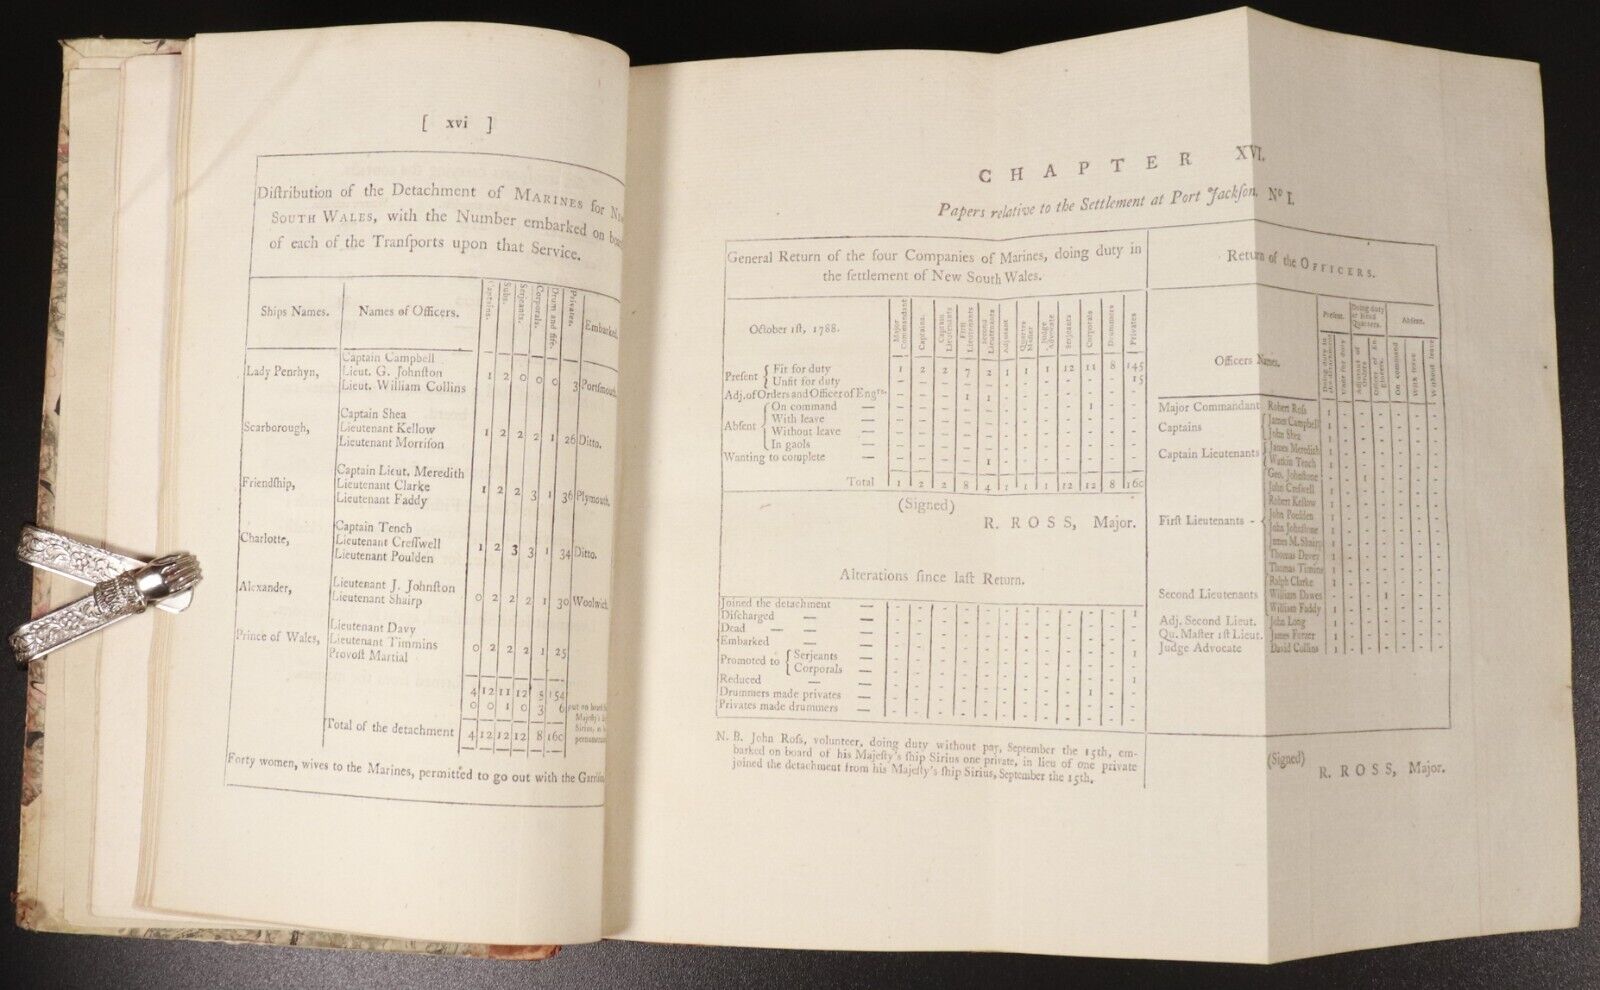 [ xvi ]
Diſtribution of the Detachment of MARINES for
SOUTH WALES, with the Number embarked on
of each of the Tranſports upon that Service.
Ships Names. Names of Officers. Captains. Subs. Serjeants. Corporals. Drum and fife. Privates. Embarked.
Captain Campbell
Lady Penrhyn, Lieut. G. Johnſton 1 2 0 0 0 3 Portſmouth.
Lieut. William Collins
Captain Shea
Scarborough, Lieutenant Kellow 1 2 2 2 1 26 Ditto.
Lieutenant Morriſon
Captain Lieut. Meredith
Friendſhip, Lieutenant Clarke 1 2 2 3 1 36 Plymouth.
Lieutenant Faddy
Captain Tench
Charlotte, Lieutenant Creſſwell 1 2 3 3 1 34 Ditto.
Lieutenant Poulden
Alexander, Lieutenant J. Johnſton
Lieutenant Shairp 0 2 2 2 1 30 Woolwich.
Lieutenant Davy
Prince of Wales, Lieutenant Timmins 0 2 2 2 1 25
Provoſt Martial
4 12 11 12 5 154
0 0 1 0 3 6 put on board
Majeſty's
Total of the detachment 4 12 12 12 8 160 Sirius,
Forty women, wives to the Marines, permitted to go out with the
CHAPTER XVI.
Papers relative to the Settlement at Port Jackſon, No I.
General Return of the four Companies of Marines, doing duty in
the ſettlement of New South Wales.
October 1ſt, 1788. Major Commandant Captains. Captain Lieutenants Firſt Lieutenants Second Lieutenants Adjutant Quarter Maſter Judge Advocate Serjeants Corporals Drummers Privates
Preſent { Fit for duty 1 2 2 7 2 1 1 1 12 11 8 145
Unfit for duty - - - - - - - - - - - 15
Adj. of Orders and Officer of Engrs. - - - 1 1 - - - - - - -
Abſent { On command — - - - - - - - - - 1 - -
With leave — - - - - - - - - - - - -
Without leave — - - - - - - - - - - - -
In gaols — - - - - - - - - - - - -
Wanting to complete — - - - - 1 - - - - - - -
Total 1 2 2 8 4 1 1 1 12 12 8 160
(Signed)
R. ROSS, Major.
Alterations ſince laſt Return.
Joined the detachment — - - - - - - - - - - - 1
Diſcharged — — - - - - - - - - - - - -
Dead — — - - - - - - - - - - - -
Embarked — — - - - - - - - - - - - 1
Promoted to { Serjeants — - - - - - - - - - - - -
Corporals — - - - - - - - - - - - -
Reduced — — - - - - - - - - - - - 1
Drummers made privates — - - - - - - - - - 1 - -
Privates made drummers — - - - - - - - - - - - -
N. B. John Roſs, volunteer, doing duty without pay, September the 15th, em-
barked on board of his Majeſty's ſhip Sirius one private, in lieu of one private
joined the detachment from his Majeſty's ſhip Sirius, September the 15th.
Return of the OFFICERS.
Preſent. Doing duty at Head Quarters. Abſent.
Officers Names. Doing duty in Unfit for duty Adjutant of Orders Officer of Engineers. On command With leave Without leave
Major Commandant Robert Roſs 1 - - - - - -
Captains { James Campbell 1 - - - - - -
John Shea 1 - - - - - -
Captain Lieutenants { James Meredith 1 - - - - - -
Watkin Tench 1 - - - - - -
Firſt Lieutenants - { Geo. Johnſtone - - 1 - - - -
John Creſwell 1 - - - - - -
Robert Kellow 1 - - - - - -
John Poulden 1 - - - - - -
John Johnſtone 1 - - - - - -
James M. Shairp 1 - - - - - -
Thomas Davey 1 - - - - - -
Thomas Timins 1 - - - - - -
Second Lieutenants { Ralph Clarke 1 - - - - - -
William Dawes - - - 1 - - -
William Faddy 1 - - - - - -
Adj. Second Lieut. John Long 1 - - - - - -
Qu. Maſter 1ſt Lieut. James Furzer 1 - - - - - -
Judge Advocate David Collins 1 - - - - - -
(Signed)
R. ROSS, Major.